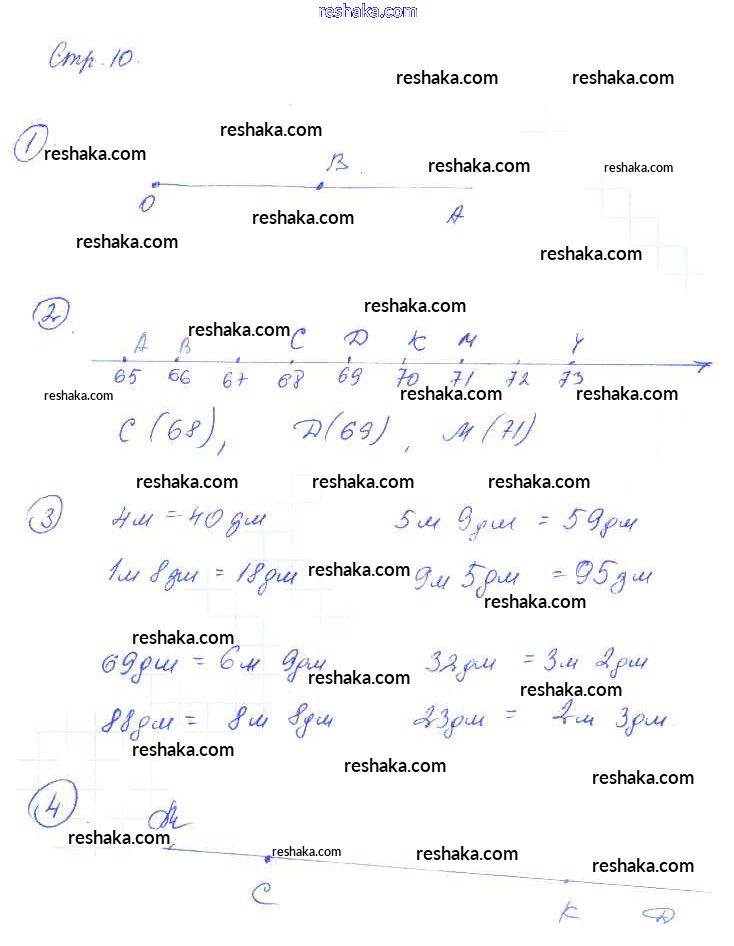 reshaka.com
Стр. 10.
reshaka.com reshaka.com
reshaka.com
1 reshaka.com
B reshaka.com reshaka.com
reshaka.com O reshaka.com A
reshaka.com
reshaka.com
2 reshaka.com
reshaka.com
A B C D K M Y
65 66 67 68 69 70 71 72 73
reshaka.com reshaka.com reshaka.com
C (68), D (69), M (71)
reshaka.com reshaka.com reshaka.com
3 4м = 40дм 5м 9дм = 59дм
1м 8дм = 18дм reshaka.com 9м 5дм = 95дм
reshaka.com
reshaka.com
69дм = 6м 9дм 32дм = 3м 2дм
reshaka.com reshaka.com
88дм = 8м 8дм 23дм = 2м 3дм.
reshaka.com
reshaka.com
reshaka.com
4
reshaka.com reshaka.com reshaka.com
reshaka.com
C K D